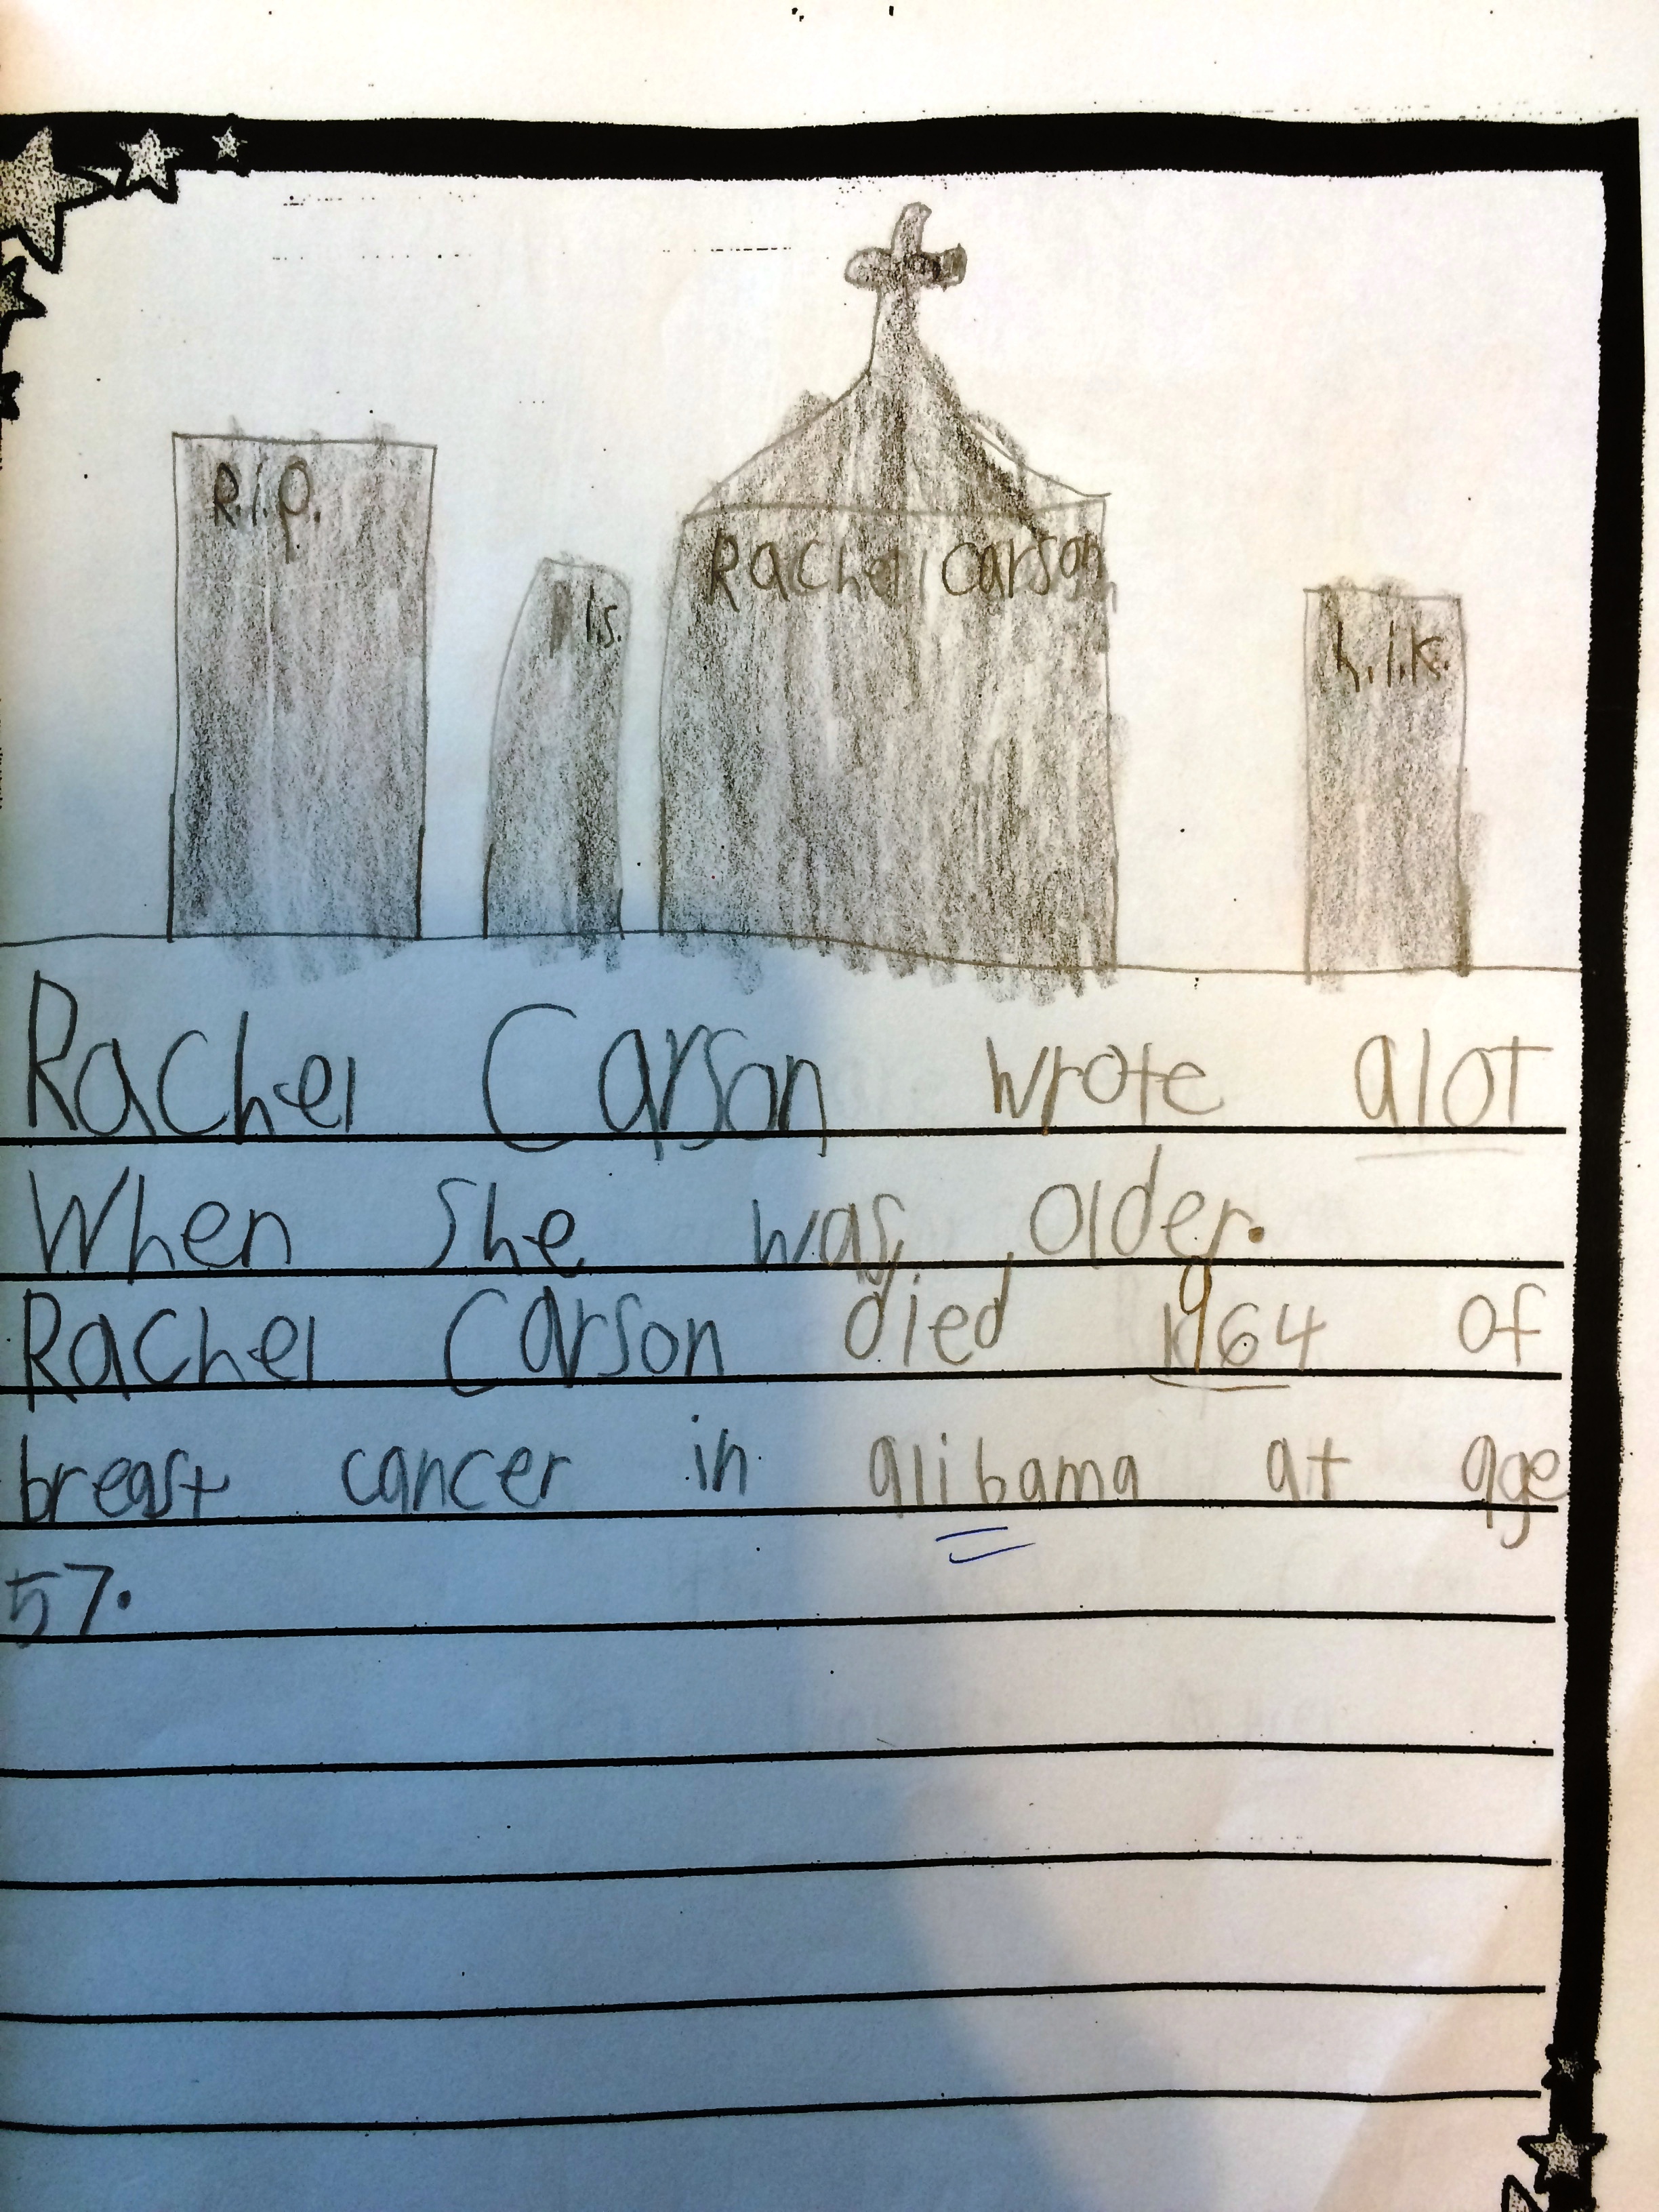 R.i.p.
l.s.
Rachel Carson
h.i.k.
Rachel Carson wrote alot
When she was older.
Rachel Carson died 1964 of
breast cancer in alibama at age
57.